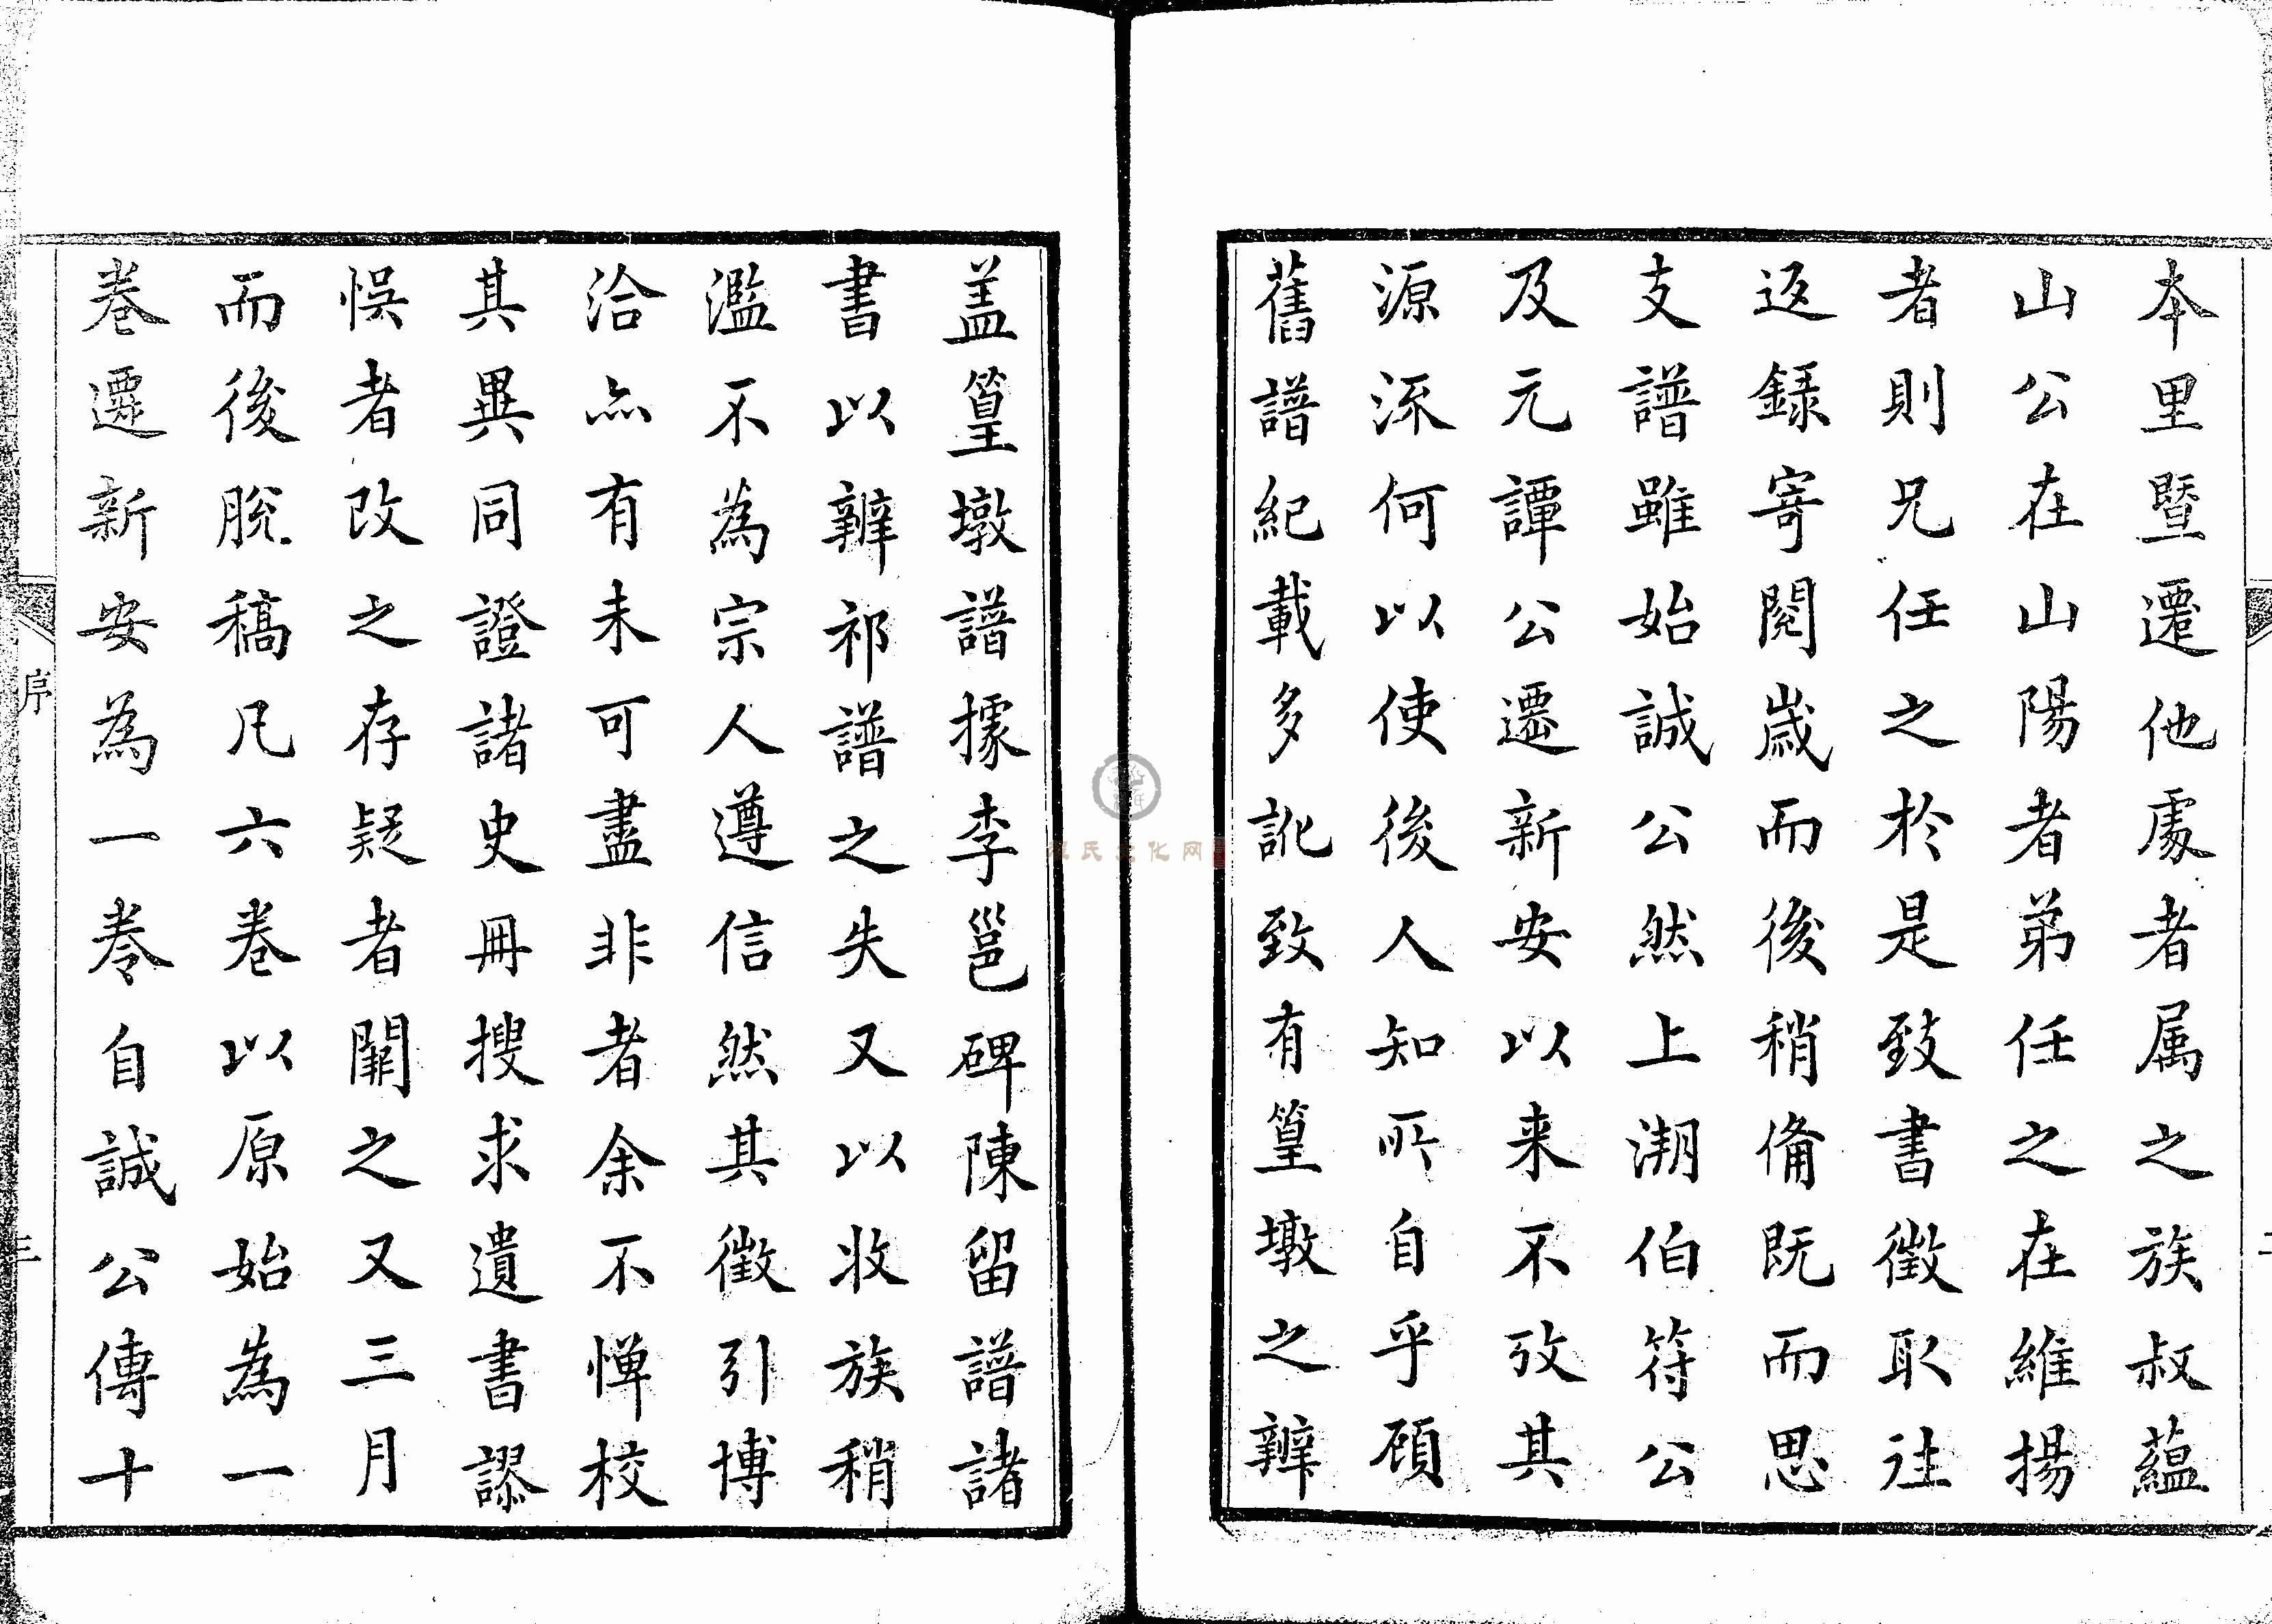 本里暨遷他處者属之族叔蘊
山公在山陽者弟任之在維揚
者則兄任之於是致書徵取往
返録寄閲歲而後稍俻既而思
支譜雖始誠公然上溯伯符公
及元譚公遷新安以来不攷其
源流何以使後人知所自乎顧
舊譜紀載多訛致有篁墩之辨
盖篁墩譜據李邕碑陳留譜諸
書以辨祁譜之失又以收族稍
濫不為宗人遵信然其徵引博
洽亦有未可盡非者余不憚校
其異同證諸史冊搜求遺書謬
悞者改之存疑者闕之又三月
而後脫稿凡六卷以原始為一
卷遷新安為一卷自誠公傳十
序
三
程氏文化网